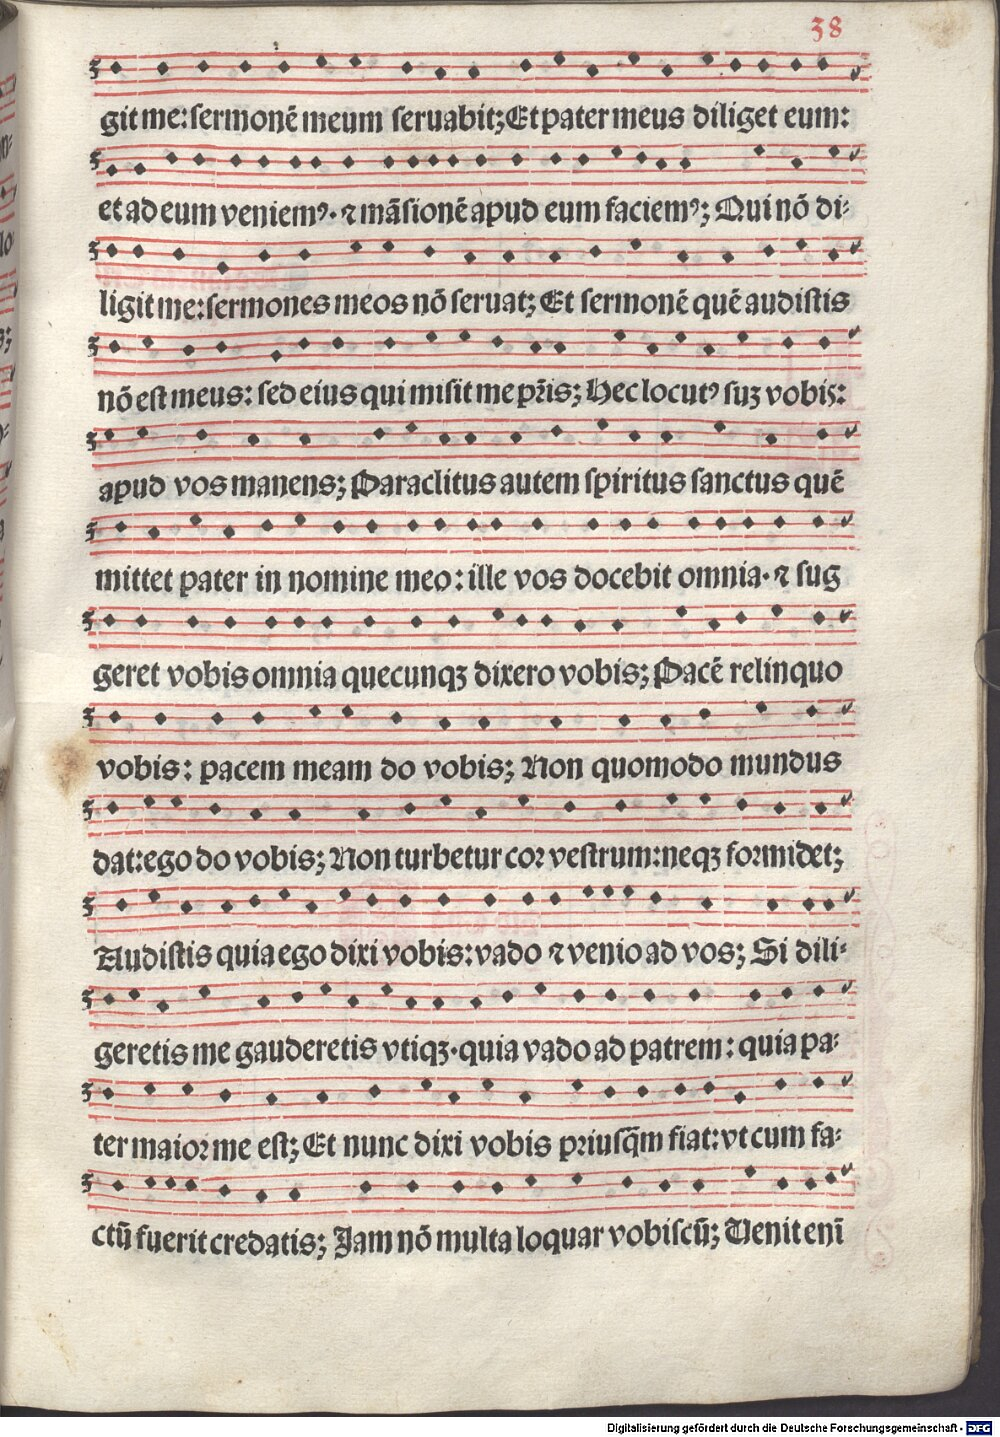 38
git me: sermonē meum seruabit; Et pater meus diliget eum:
et ad eum veniemꝰ· ⁊ māsionē apud eum faciemꝰ; Qui nō di⸗
ligit me: sermones meos nō seruat; Et sermonē quē audistis
nō est meus: sed eius qui misit me pr̄is; Hec locutꝰ suꝫ vobis:
apud vos manens; Paraclitus autem spiritus sanctus quē
mittet pater in nomine meo: ille vos docebit omnia· ⁊ sug
geret vobis omnia quecunqꝫ dixero vobis; Pacē relinquo
vobis: pacem meam do vobis; Non quomodo mundus
dat: ego do vobis; Non turbetur cor vestrum: neqꝫ formidet;
Audistis quia ego dixi vobis: vado ⁊ venio ad vos; Si dili⸗
geretis me gauderetis vtiqꝫ· quia vado ad patrem: quia pa⸗
ter maior me est; Et nunc dixi vobis priusq̄m fiat: vt cum fa⸗
ctū fuerit credatis; Jam nō multa loquar vobiscū; Uenit enī
Digitalisierung gefördert durch die Deutsche Forschungsgemeinschaft - DFG